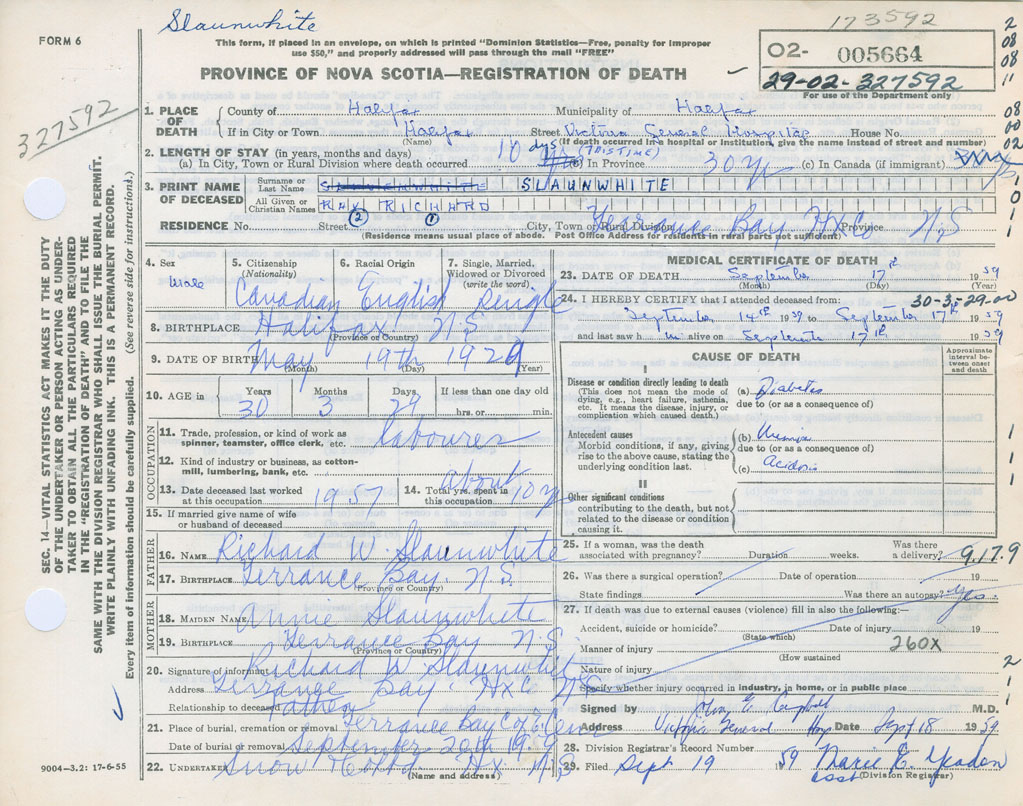 Slaunwhite
173592
FORM 6
This form, if placed in an envelope, on which is printed "Dominion Statistics—Free, penalty for improper
use $50," and properly addressed will pass through the mail "FREE"
PROVINCE OF NOVA SCOTIA—REGISTRATION OF DEATH
02- 005664
29-02-327592
For use of the Department only
327592
1. PLACE OF DEATH
County of Halifax Municipality of Halifax
If in City or Town Halifax Street Victoria General Hospital House No.
(Name) (If death occurred in a hospital or institution, give the name instead of street and number)
2. LENGTH OF STAY (in years, months and days)
(a) In City, Town or Rural Division where death occurred 10 days (THIS TIME) (b) In Province 30 y (c) In Canada (if immigrant)
3. PRINT NAME OF DECEASED
Surname or Last Name SLAUNWHITE
All Given or Christian Names RAY RICHARD
(2) (1)
RESIDENCE No. Street City, Town or Rural Division Terrance Bay Hx Co Province N,S
(Residence means usual place of abode. Post Office Address for residents in rural parts not sufficient)
4. Sex Male
5. Citizenship (Nationality) Canadian
6. Racial Origin English
7. Single, Married, Widowed or Divorced (write the word) Single
8. BIRTHPLACE Halifax N.S
(Province or Country)
9. DATE OF BIRTH May 19th 1929
(Month) (Day) (Year)
10. AGE in Years 30 Months 3 Days 29 If less than one day old hrs. or min.
OCCUPATION
11. Trade, profession, or kind of work as spinner, teamster, office clerk, etc. Laboures
12. Kind of industry or business, as cotton-mill, lumbering, bank, etc.
13. Date deceased last worked at this occupation 1957
14. Total yrs. spent in this occupation about 10 y
15. If married give name of wife or husband of deceased
FATHER
16. NAME Richard W. Slaunwhite
17. BIRTHPLACE Terrance Bay. N.S.
(Province or Country)
MOTHER
18. MAIDEN NAME Annie Slaunwhite
19. BIRTHPLACE Terrance Bay N.S.
(Province or Country)
20. Signature of informant Richard W Slaunwhite
Address Terrance Bay. Hx Co N.S
Relationship to deceased Father
21. Place of burial, cremation or removal Terrance Bay C of E Cem
Date of burial or removal September 20th 1959
22. UNDERTAKER Snow Co Ltd Hx N,S
(Name and address)
9004—3.2: 17-6-55
MEDICAL CERTIFICATE OF DEATH
23. DATE OF DEATH September 17th 1959
(Month) (Day) (Year)
30-3-29.00
24. I HEREBY CERTIFY that I attended deceased from:
September 14th 1959 to September 17th 1959
and last saw h im alive on September 17th 1959
CAUSE OF DEATH
Approximate interval between onset and death
I
Disease or condition directly leading to death
(This does not mean the mode of dying, e.g., heart failure, asthenia, etc. It means the disease, injury, or complication which caused death.)
(a) Diabetes
due to (or as a consequence of)
Antecedent causes
Morbid conditions, if any, giving rise to the above cause, stating the underlying condition last.
(b) Uremia
due to (or as a consequence of)
(c) Acidosis
II
Other significant conditions
contributing to the death, but not related to the disease or condition causing it.
25. If a woman, was the death associated with pregnancy? Duration weeks. Was there a delivery?
9.17.9
26. Was there a surgical operation? Date of operation 19
State findings Was there an autopsy? Yes
27. If death was due to external causes (violence) fill in also the following:—
Accident, suicide or homicide? Date of injury 19
(State which)
Manner of injury 260X
(How sustained
Nature of injury
Specify whether injury occurred in industry, in home, or in public place
Signed by John E. Campbell M.D.
Address Victoria General Hosp Date Sept 18 1959
28. Division Registrar's Record Number
29. Filed Sept 19 1959 Marie E. Yeadon
asst (Division Registrar)
SEC. 14—VITAL STATISTICS ACT MAKES IT THE DUTY
OF THE UNDERTAKER OR PERSON ACTING AS UNDERTAKER TO OBTAIN ALL THE PARTICULARS REQUIRED
IN THE "REGISTRATION OF DEATH" AND TO FILE THE
SAME WITH THE DIVISION REGISTRAR WHO SHALL ISSUE THE BURIAL PERMIT.
WRITE PLAINLY WITH UNFADING INK. THIS IS A PERMANENT RECORD.
Every item of information should be carefully supplied. (See reverse side for instructions.)